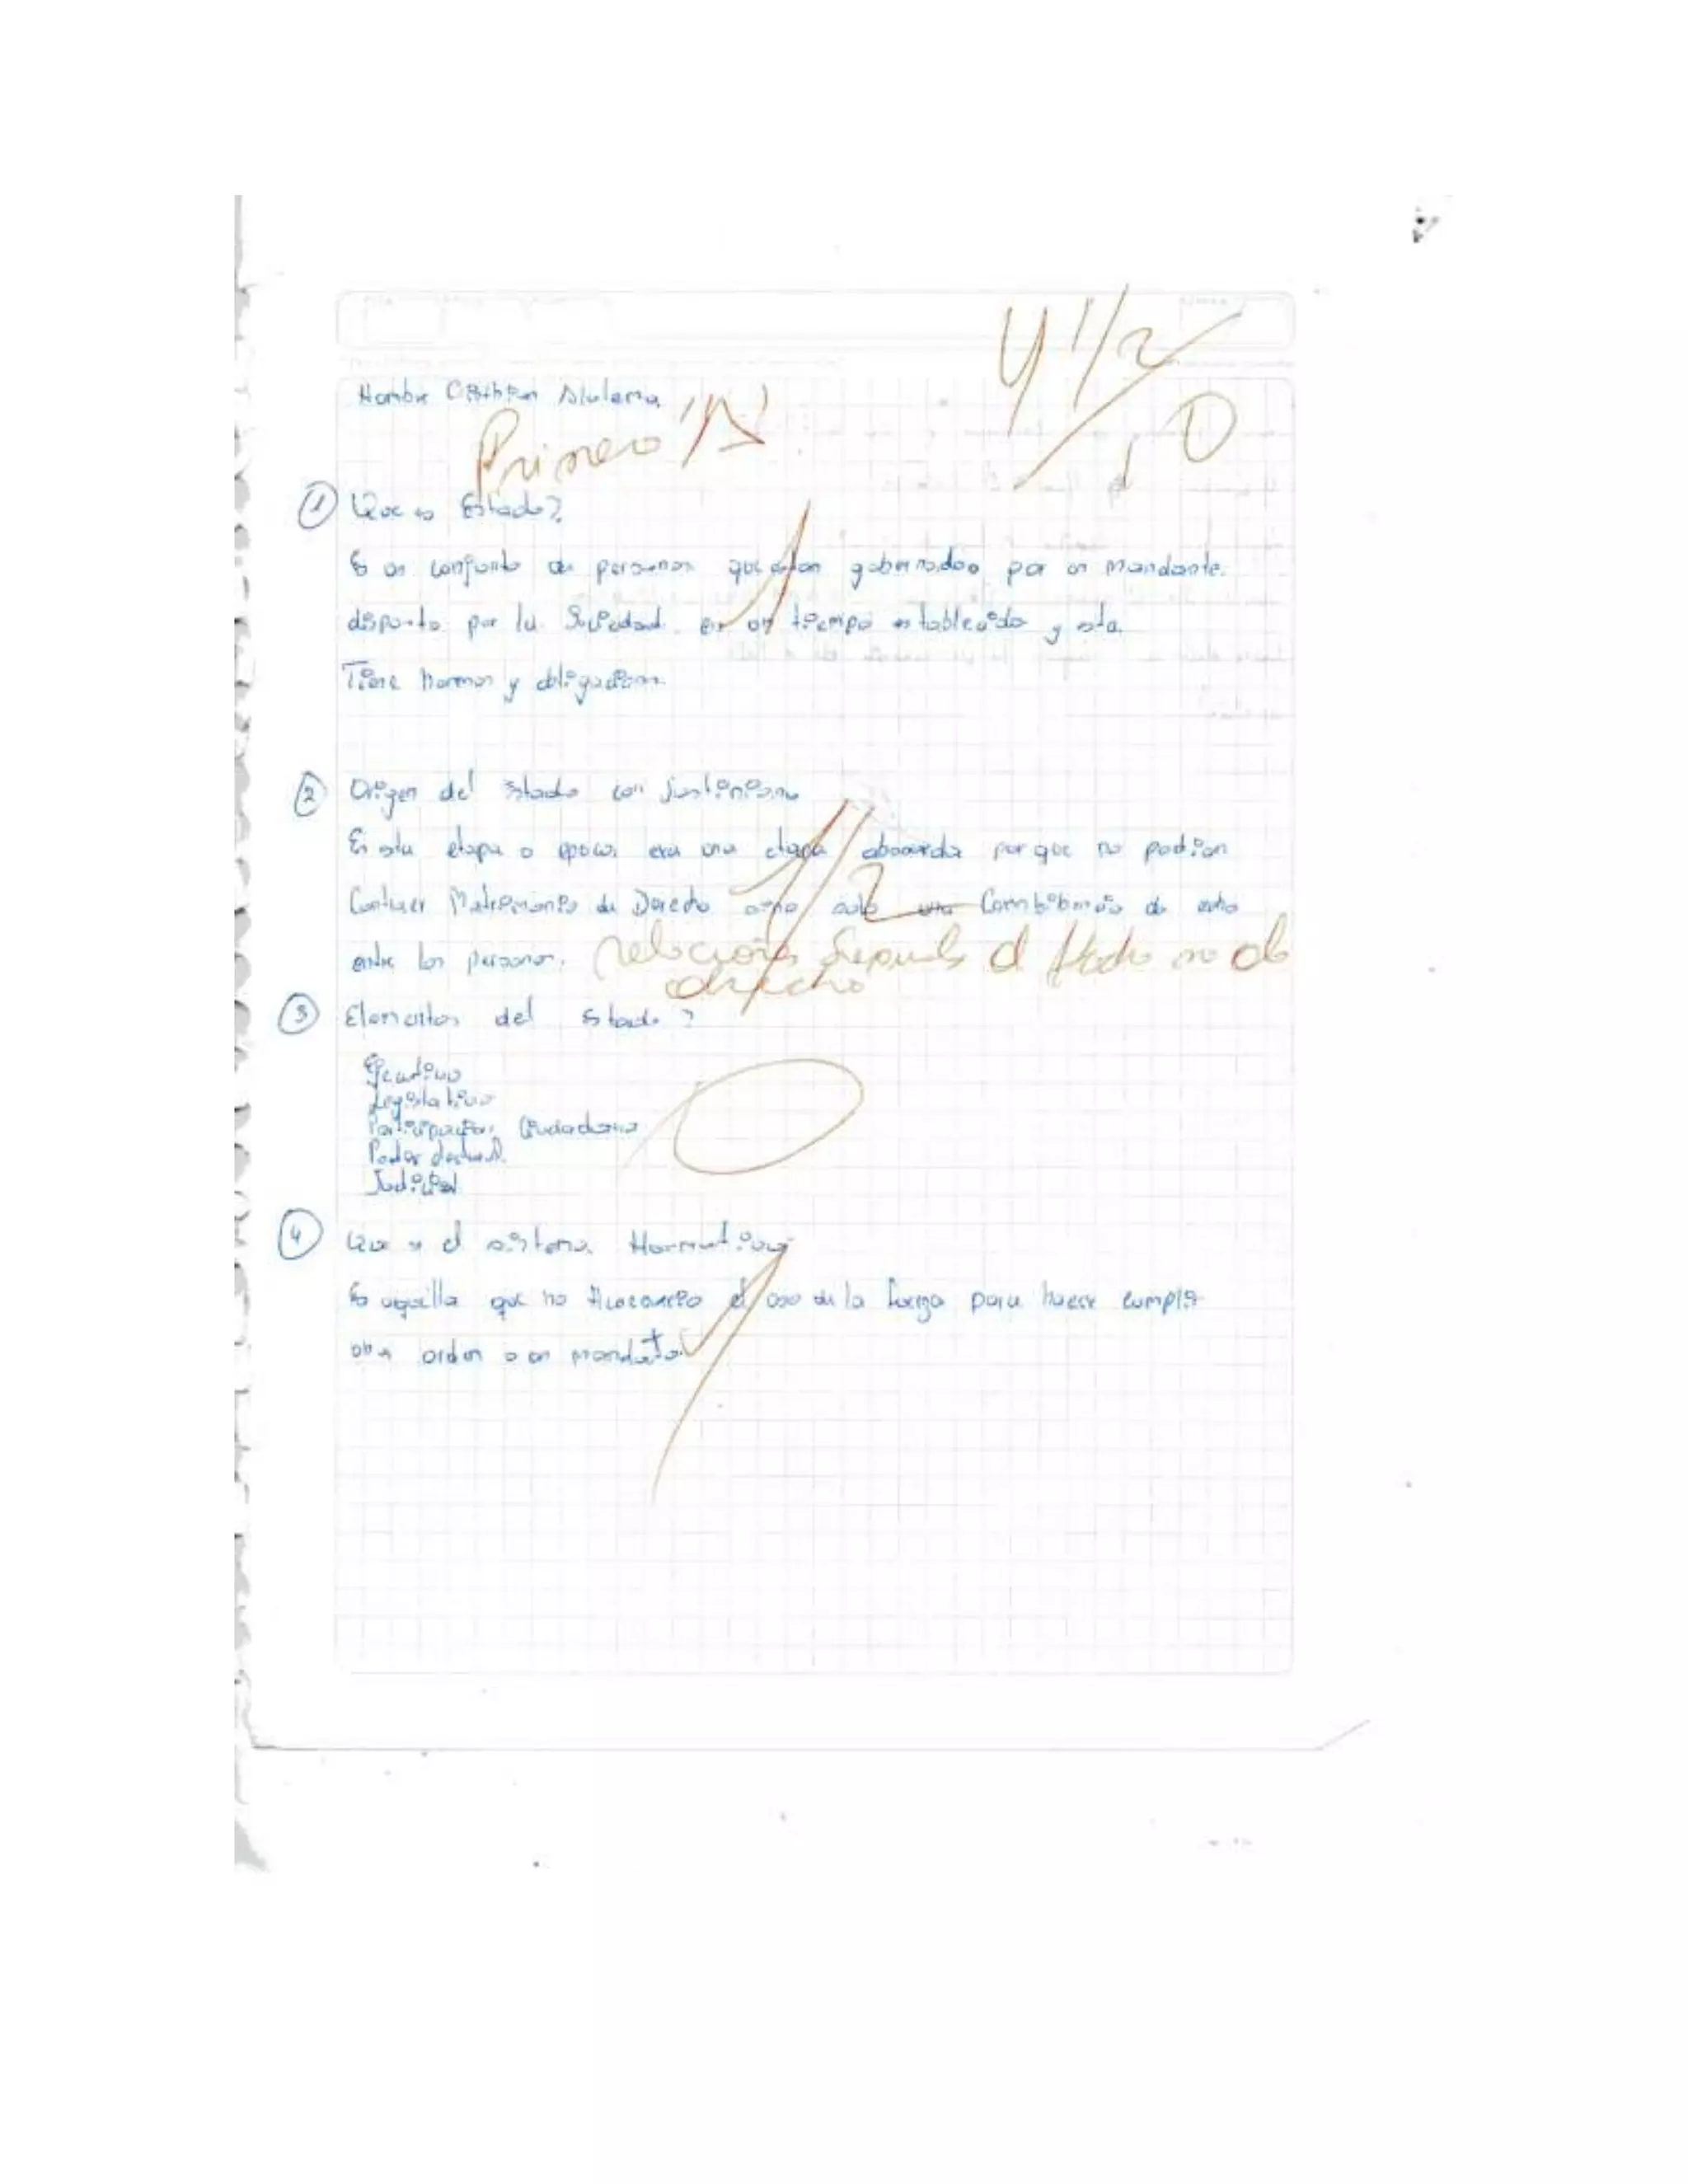 Nombre Cristhian Alulema
4 1/2
10
Primero "A"
1 Que es Estado?
Es un conjunto de personas que estan gobernados por un mandante.
dispuesto por la Sociedad en un tiempo establecido y esta
Tiene Normas y obligaciones.
2 Origen del Estado con Justiniano
1/2
En esta etapa o epoca era una etapa aboccarda por que no podian
Contraer Matrimonio de Derecho sino solo una de esto
entre las personas. relaciona después el Estado no de
derecho
3 Elementos del Estado?
Ejecutivo
Legislativo
Participacion Ciudadana
Poder electoral
Judicial
0
4 Que es el sistema Normativo
Es aquella que no Necesario el uso de la fuerza para hacer cumplir
una orden o un mandato